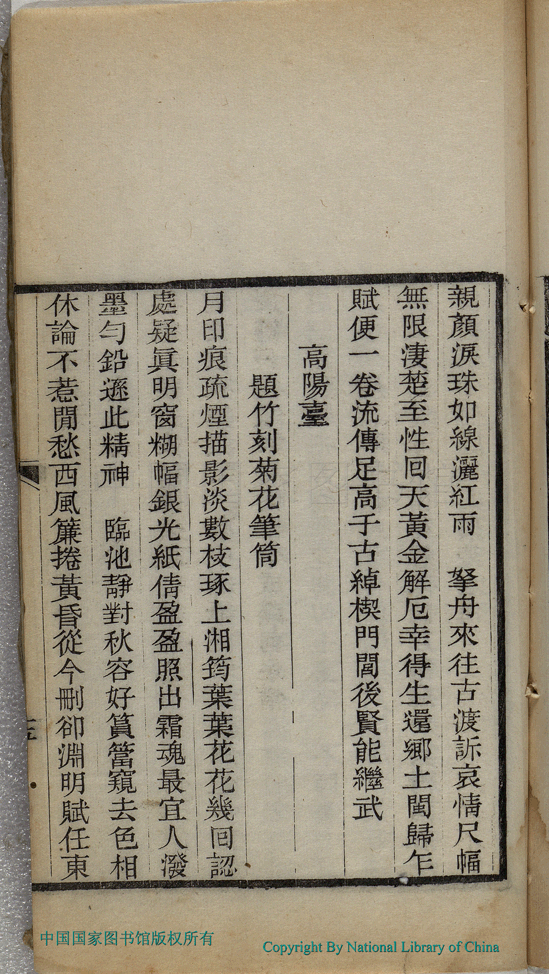 親顏淚珠如線灑紅雨　拏舟來往古渡訴哀情尺幅
無限淒楚至性回天黃金解厄幸得生還鄉土閩歸乍
賦便一卷流傳足高千古綽楔門閭後賢能繼武
高陽臺
題竹刻菊花筆筒
月印痕疏煙描影淡數枝琢上湘筠葉葉花花幾回認
處疑眞明窗糊幅銀光紙倩盈盈照出霜魂最宜人潑
墨勻鉛遜此精神　臨池靜對秋容好篔簹窺去色相
休論不惹閒愁西風簾捲黃昏從今刪卻淵明賦任東
中国国家图书馆版权所有
Copyright By National Library of China